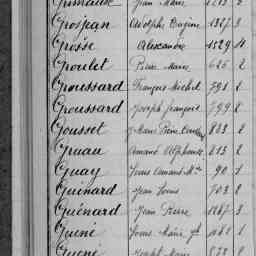 Grimaude Jean Marie
Grospean Adolphe Eugène 1327 3
Grosse Alexandre 1529 4
Groulet Pierre Marie 626 2
Groussard François Michel 591 2
Groussard Joseph François 799 2
Gousset Marie Pierre 803 2
Gruau Amand Alphonse 213 2
Guay Louis Amand 90 1
Guénard Jean Louis 703 2
Guénard Jean Pierre 1067 3
Guéné Louis Marie 1061 3
Guéné Joseph Marie